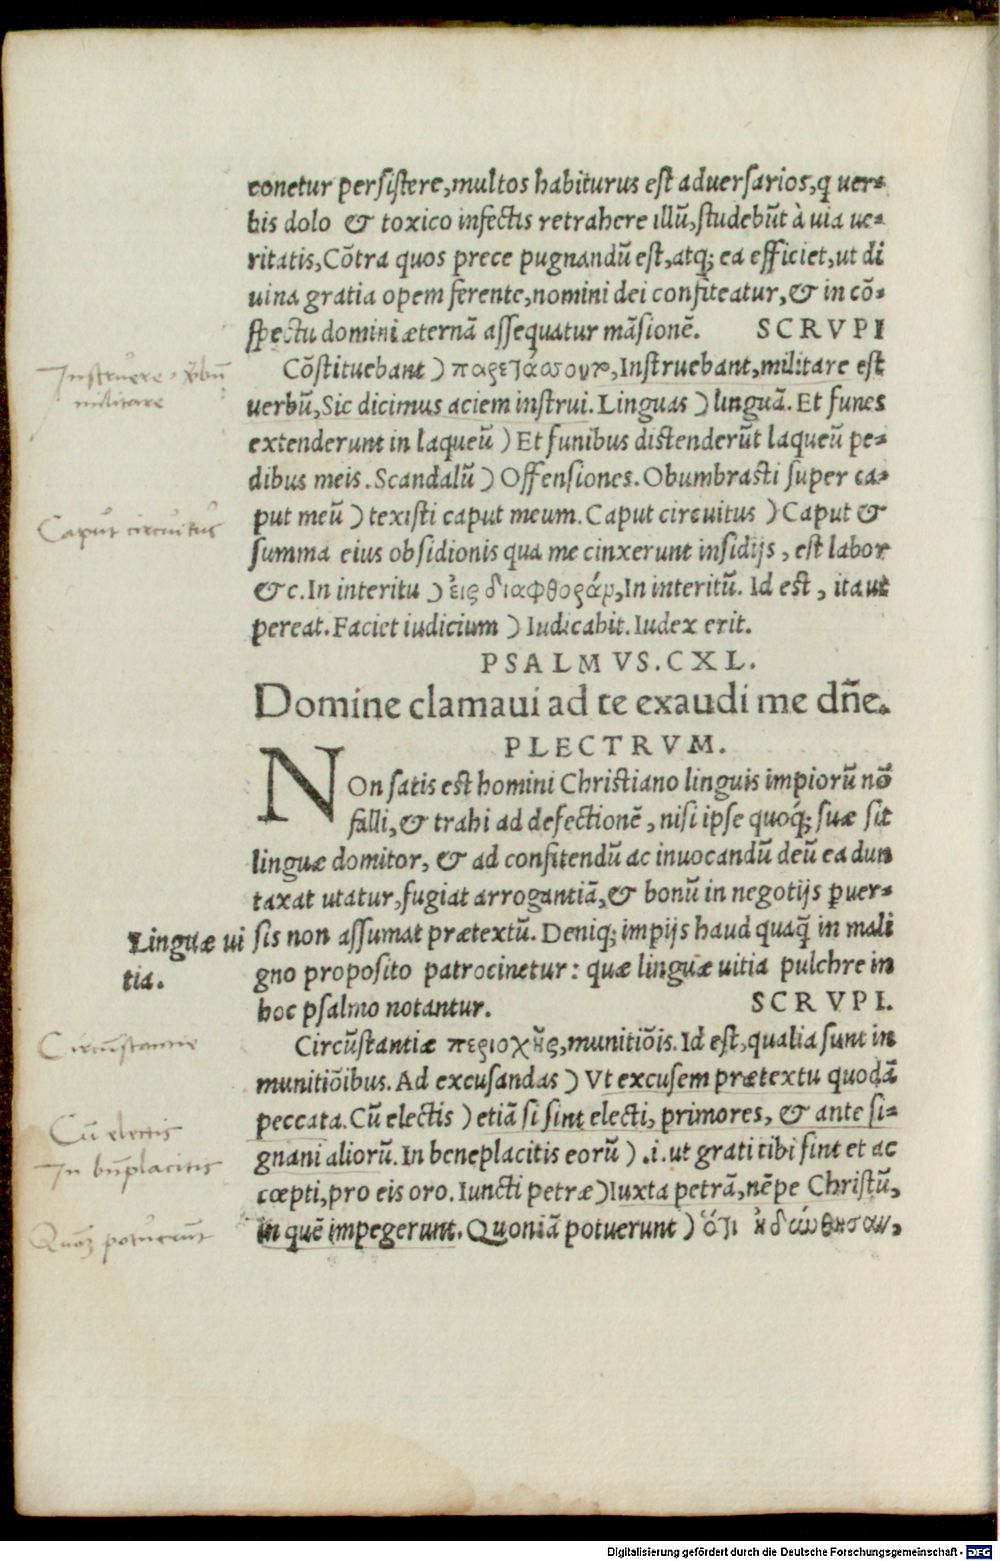 conetur persistere, multos habiturus est aduersarios, q uer⸗
bis dolo & toxico infectis retrahere illũ, studebũt à uia ue⸗
ritatis, Cõtra quos prece pugnandũ est, atq; ea efficiet, ut di
uina gratia opem ferente, nomini dei confiteatur, & in cõ⸗
spectu domini æternã assequatur mãsionẽ. SCRVPI
Instruere · verbũ
militare
Cõstituebant ) παρετάσσουν, Instruebant, militare est
uerbũ, Sic dicimus aciem instrui. Linguas ) linguã. Et funes
extenderunt in laqueũ ) Et funibus distenderũt laqueũ pe⸗
dibus meis. Scandalũ ) Offensiones. Obumbrasti super ca⸗
put meũ ) texisti caput meum. Caput circuitus ) Caput &
Caput circuitus
summa eius obsidionis qua me cinxerunt insidijs, est labor
&c. In interitu ) ἐις διαφθοράν, In interitũ. Id est, ita ut
pereat. Faciet iudicium ) Iudicabit. Iudex erit.
PSALMVS. CXL.
Domine clamaui ad te exaudi me dñe.
PLECTRVM.
NOn satis est homini Christiano linguis impiorũ nõ
falli, & trahi ad defectionẽ, nisi ipse quoq́; suæ sit
linguæ domitor, & ad confitendũ ac inuocandũ deũ ea dun
taxat utatur, fugiat arrogantiã, & bonũ in negotijs puer⸗
Linguæ ui
tia.
sis non assumat prætextũ. Deniq; impijs haud quaq̃ in mali
gno proposito patrocinetur: quæ linguæ uitia pulchre in
hoc psalmo notantur. SCRVPI.
Circũstantiæ
Circũstantiæ περιοχῆς, munitiõis. Id est, qualia sunt in
munitiõibus. Ad excusandas ) Vt excusem prætextu quodã
Cũ electis
peccata. Cũ electis ) etiã si sint electi, primores, & ante si⸗
In bñplacitis
gnani aliorũ. In beneplacitis eorũ ) .i. ut grati tibi sint et ac
cœpti, pro eis oro. Iuncti petræ ) Iuxta petrã, nẽpe Christũ,
potuerunt
in quẽ impegerunt. Quoniã potuerunt ) ὅτι ἠδύνθησαν,
Digitalisierung gefördert durch die Deutsche Forschungsgemeinschaft - DFG